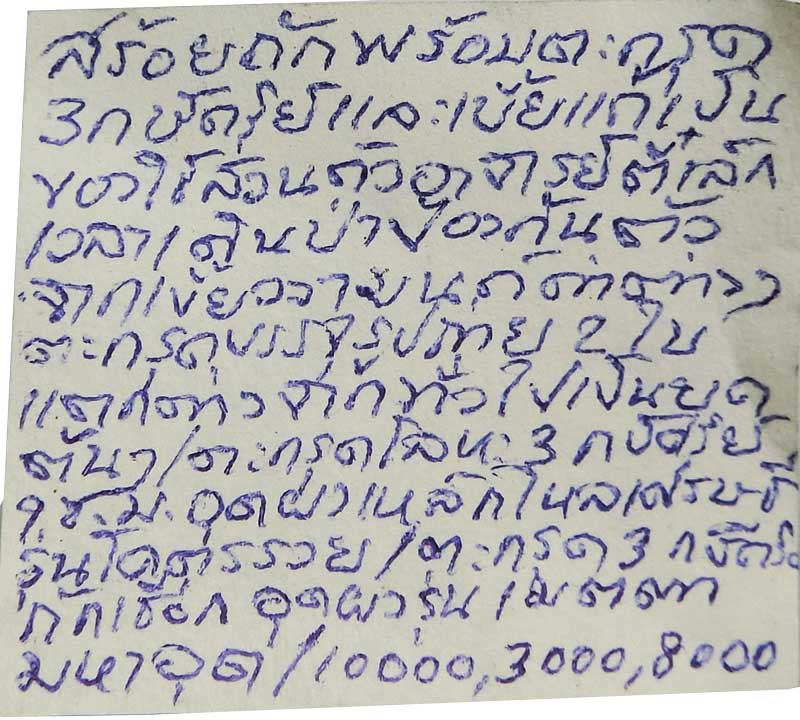 สร้อยถักพร้อมตะกรุด
3กษัตริย์และเบี้ยแก้เป็น
ของใช้ส่วนตัวอาจารย์ต้าเล็ก
เวลาเดินป่าป้องกันตัว
จากเขี้ยวงามนุต์ต่างๆ
ตะกรุดบรรจุรูปถ่าย 2 ใบ
แตกต่างจากทั่วไปเป็นยุค
ต้นๆ/ตะกรุดโลหะ 3 กษัตริย์
9 ซ.ม. อุดผงเหล็กไหลเศรษฐี
รุ่นโคตรรวย/ตะกรุด 3 กษัตริย์
ถักเชือก อุดผงรุ่นเมตตา
มหาอุด/10000,3000,8000